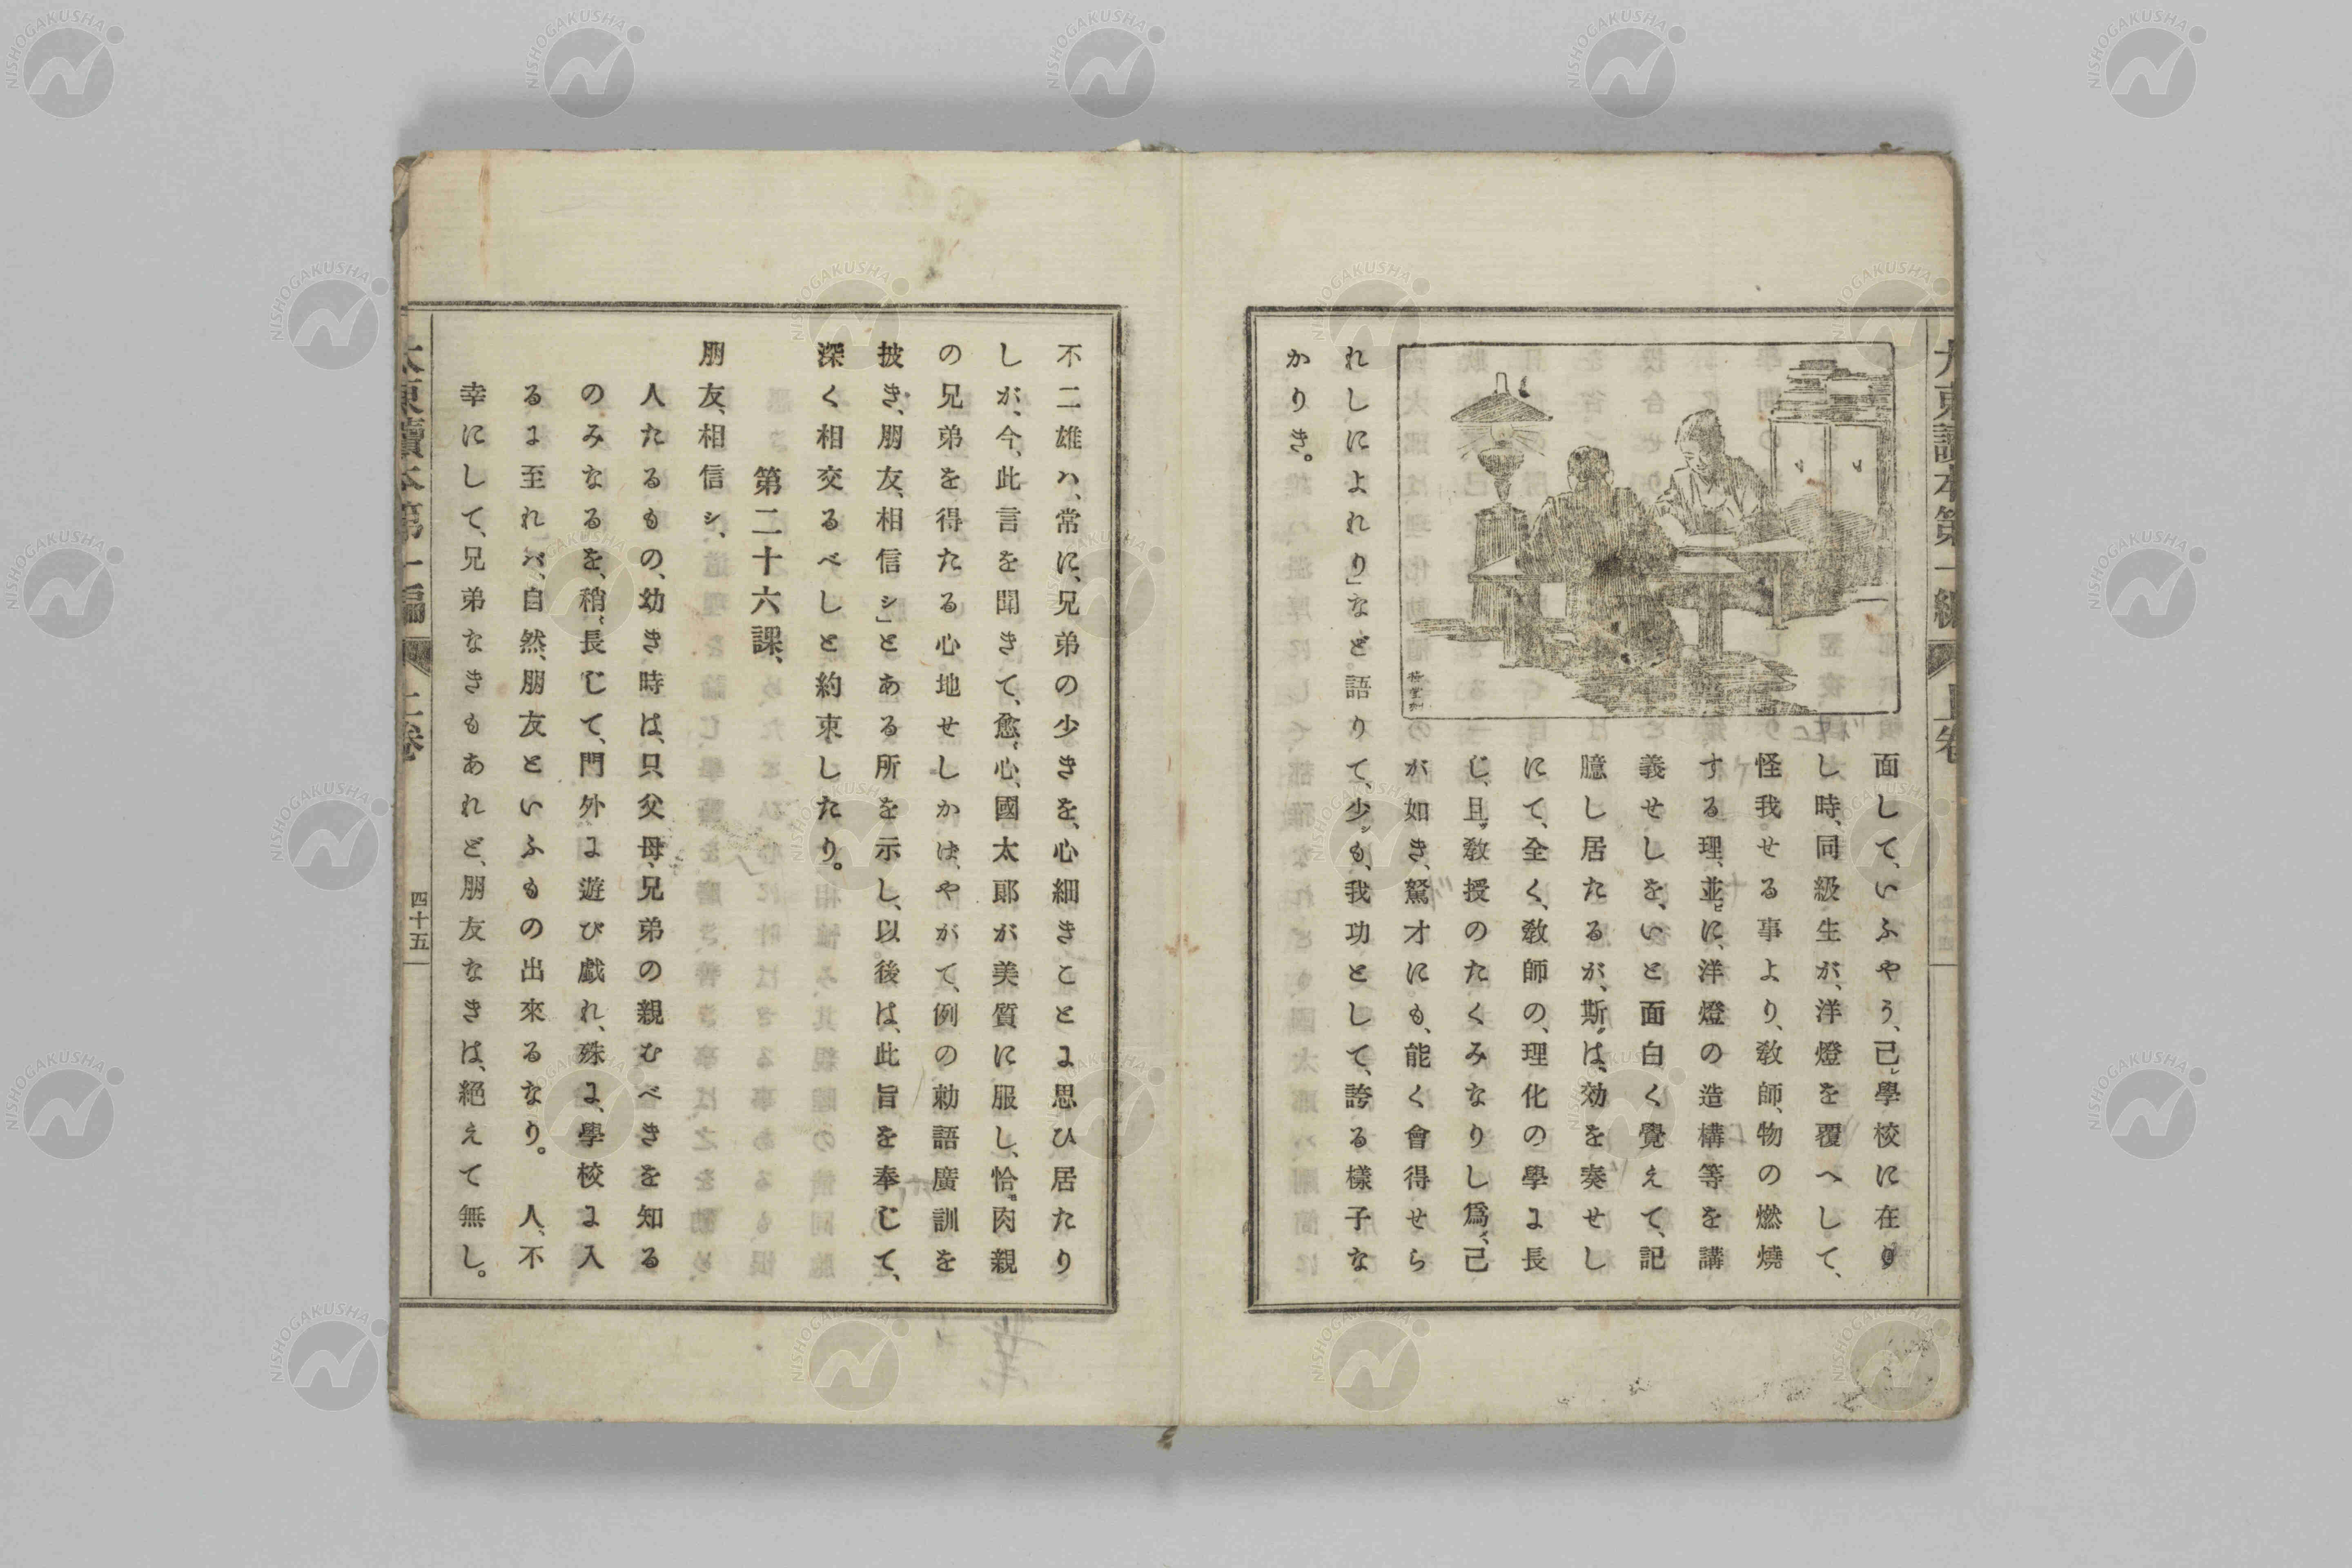 面して、いふやう、己レ學校に在り
し時、同級生が、洋燈を覆へして、
怪我せる事より、教師、物の燃燒
する理、並ビに、洋燈の造構等を講
義せしを、いと面白く覺えて、記
臆し居たるが、斯は、効を奏せし
にて、全く、教師の、理化の學に長
じ、且、教授のたくみなりし爲、己
が如き、駑才にも、能く會得せら
れしによれり」など語りて、少シも、我功として、誇る樣子な
かりき。
不二雄ハ、常に、兄弟の少きを、心細きことに思ひ居たり
しが、今、此言を聞きて、愈、心、國太郎が美質に服し、恰、肉親
の兄弟を得たる心地せしかは、やがて、例の勅語廣訓を
披き、朋友、相信シ」とある所を示し、以後は、此旨を奉じて、
深く相交るべしと約束したり。
第二十六課、
朋友、相信シ、
人たるもの、幼き時は、只、父母、兄弟の親むべきを知る
のみなるを、稍、長じて、門外に遊び戲れ、殊に、學校に入
るに至れバ、自然、朋友といふもの出來るなり。 人、不
幸にして、兄弟なきもあれど、朋友なきは、絕えて無し。
四十五
NISHOGAKUSHA